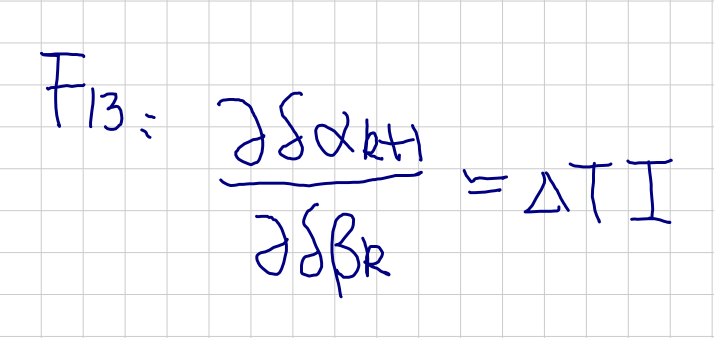 F₁₃: ∂δα_{k+1} / ∂δβ_k = ΔT I